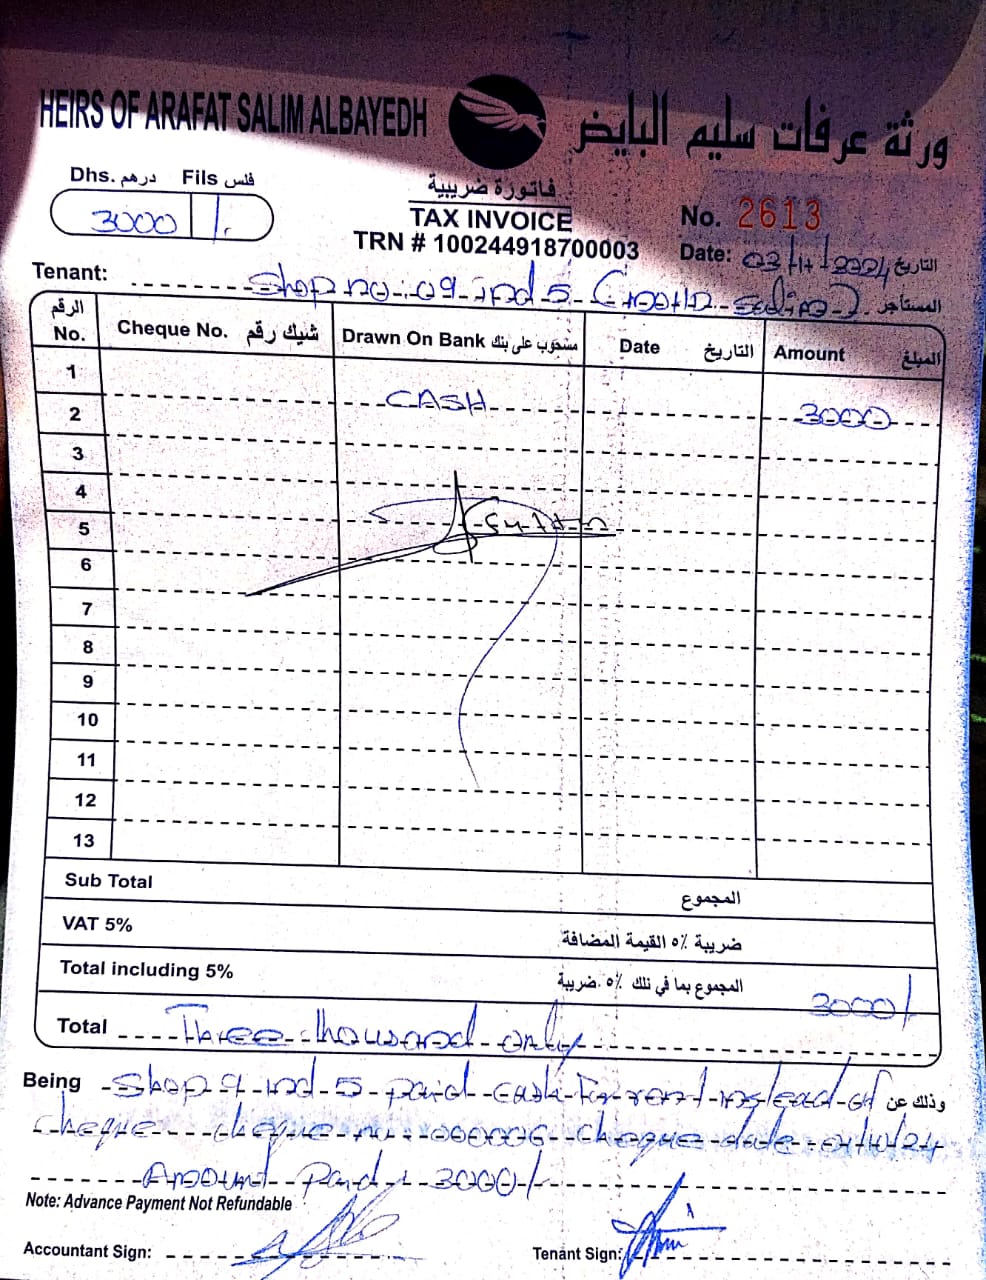 HEIRS OF ARAFAT SALIM ALBAYEDH ورثة عرفات سليم البايض
Dhs. درهم Fils فلس
3000 /.
فاتورة ضريبية
TAX INVOICE
TRN # 100244918700003
No. 2613
Date: 03/11/2024 التاريخ
Tenant: Shop no. 09 ind 5 المستأجر
الرقم No. Cheque No. شيك رقم Drawn On Bank مسحوب على بنك Date التاريخ Amount المبلغ
1
2 CASH 3000
3
4
5 Sultan
6
7
8
9
10
11
12
13
Sub Total المجموع
VAT 5% ضريبة ٥٪ القيمة المضافة
Total including 5% المجموع بما في ذلك ٥٪ ضريبة 3000/
Total Three thousand only
Being Shop 9 ind 5 paid cash for rent instead of وذلك عن
cheque cheque no. 000006 cheque date 04/11/24
Amount Paid 3000/-
Note: Advance Payment Not Refundable
Accountant Sign: Tenant Sign: